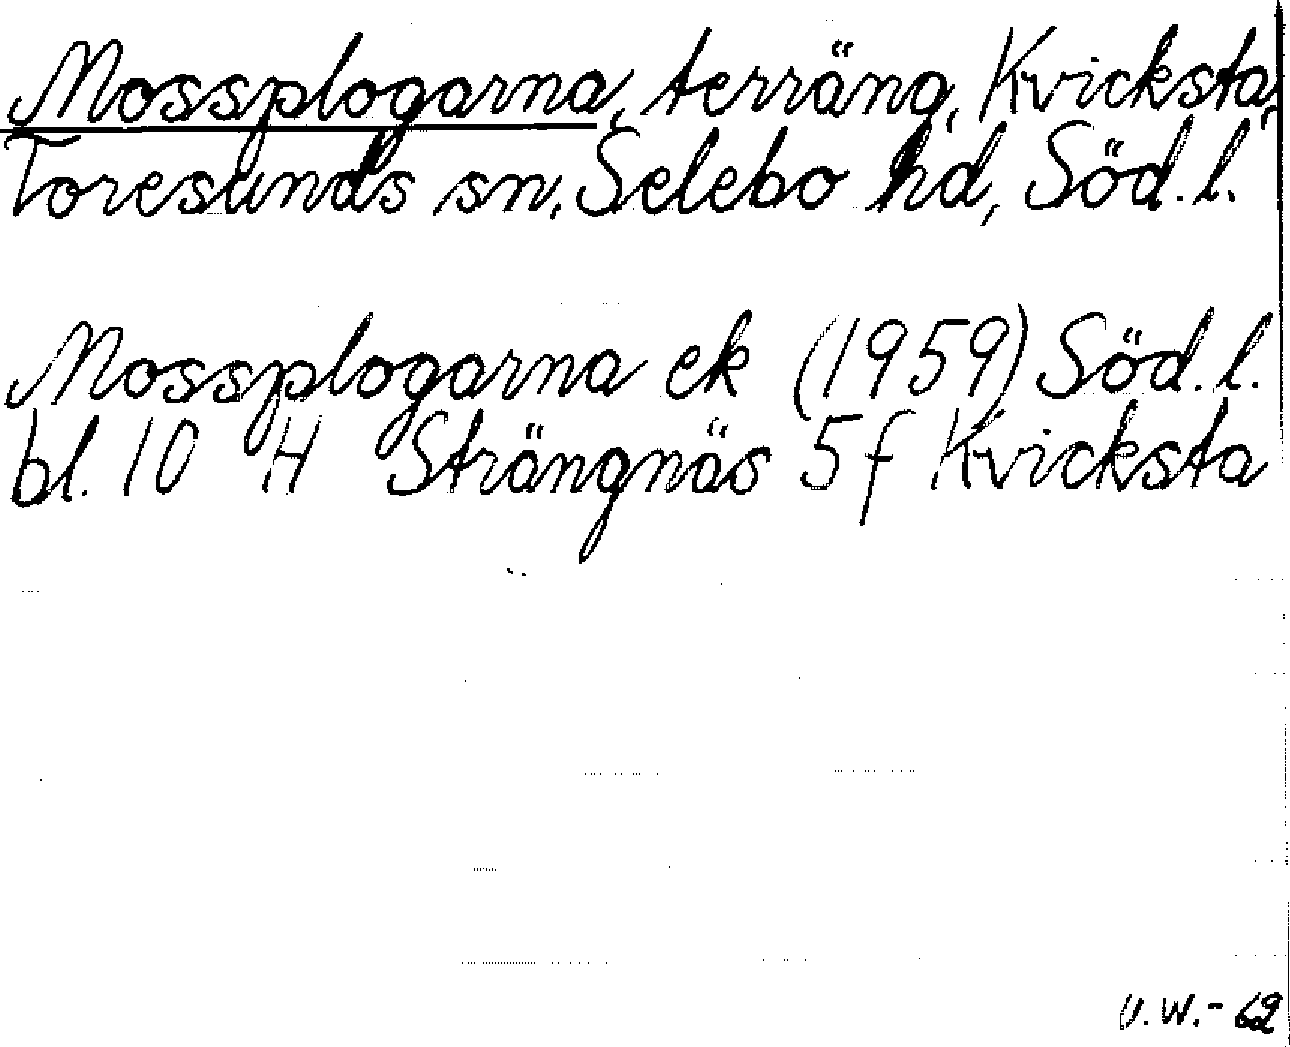 Mossplogarna, terräng, Kvicksta,
Toresunds sn, Selebo hd, Söd.l.
Mossplogarna ek (1959) Söd.l.
bl. 10 H Strängnäs 5f Kvicksta
U.W.-62